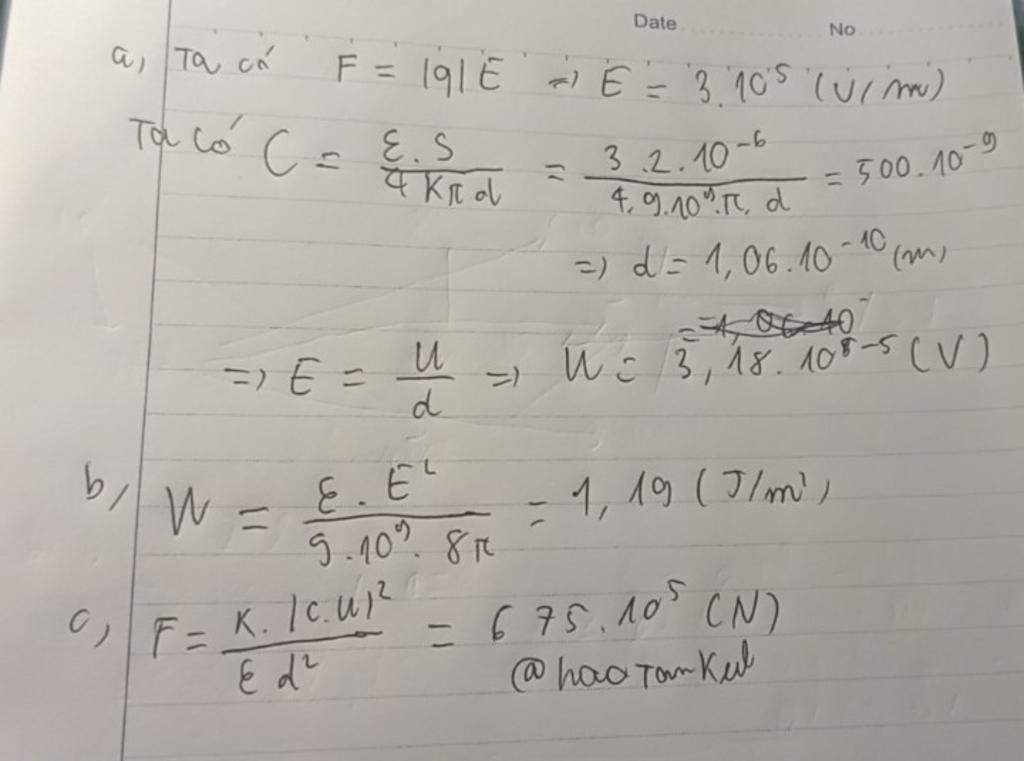 Date No
a, Ta có F = |q|E => E = 3.10⁵ (V/m)
Ta có C = ε.S / 4Kπd = 3.2.10⁻⁶ / 4.9.10⁹.π.d = 500.10⁻⁹
=> d = 1,06.10⁻¹⁰ (m)
=> E = U / d => U = 3,18.10⁻⁵ (V)
b, W = ε.E² / 9.10⁹.8π = 1,19 (J/m³)
c, F = K.|C.U|² / ε d² = 675.10⁵ (N)
@haoTamKul